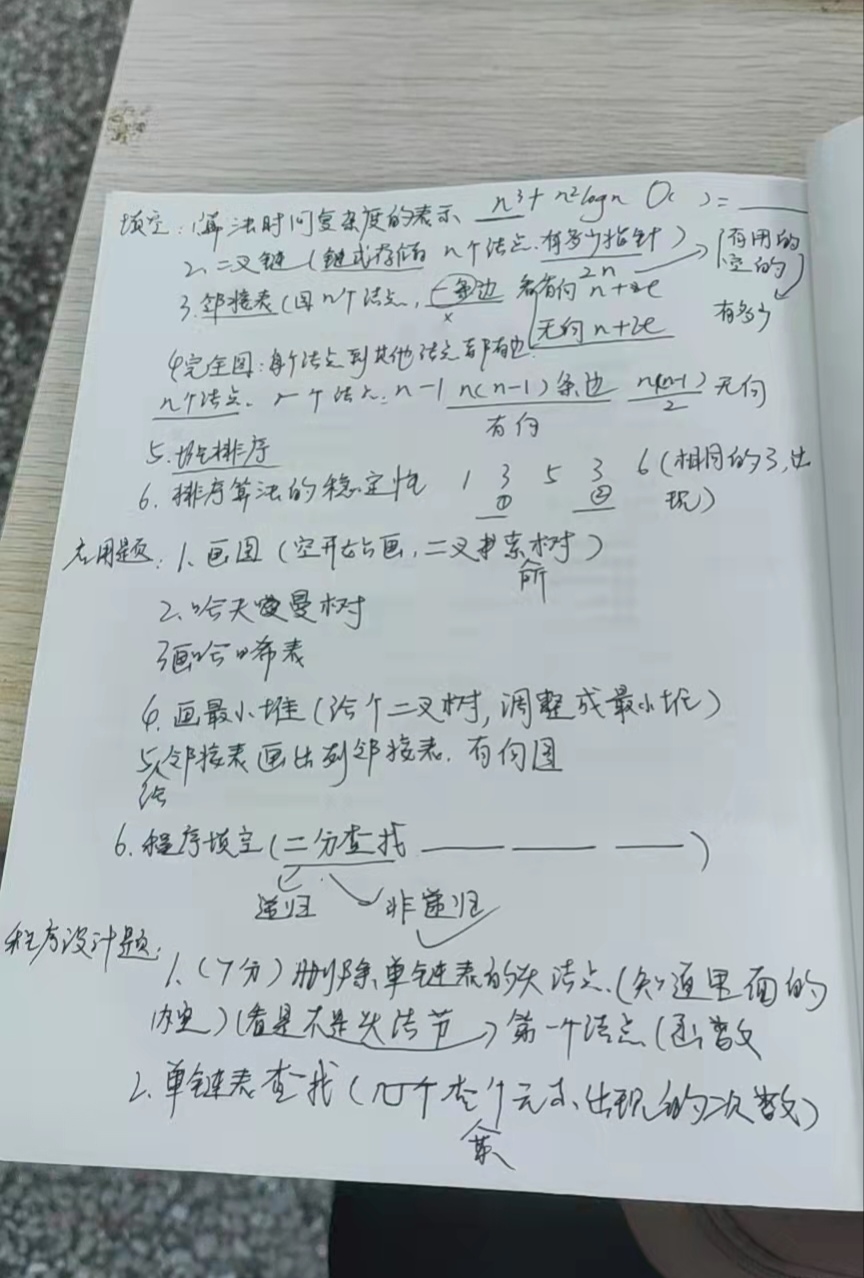 填空: 1.算法时间复杂度的表示 n³+n²logn O( )=____
2. 二叉链(链式存储 n个结点.有多少指针) 有用的
2n 空的
3.邻接表(图 n个结点, 一条边 有向 n+e 有多少
x 无向 n+2e
4完全图:每个结点到其他结点都有边.
n个结点. 一个结点. n-1 n(n-1)条边 n(n-1)/2 无向
有向
5.堆排序
6. 排序算法的稳定性 1 3 5 3 6(相同的3,出
① ② 现)
应用题: 1、画图(空开始画,二叉搜索树)
2.哈夫曼树
3画哈希表
4.画最小堆(给个二叉树,调整成最小堆)
5.给邻接表画出 邻接表. 有向图
6.程序填空(二分查找 ____ ____ ____)
递归 非递归
程序设计题:
1.(7分)删除单链表的头结点.(知道里面的
内容)(看是不是头结节 第一个结点(函数
2.单链表查找( 某个元素出现的次数)